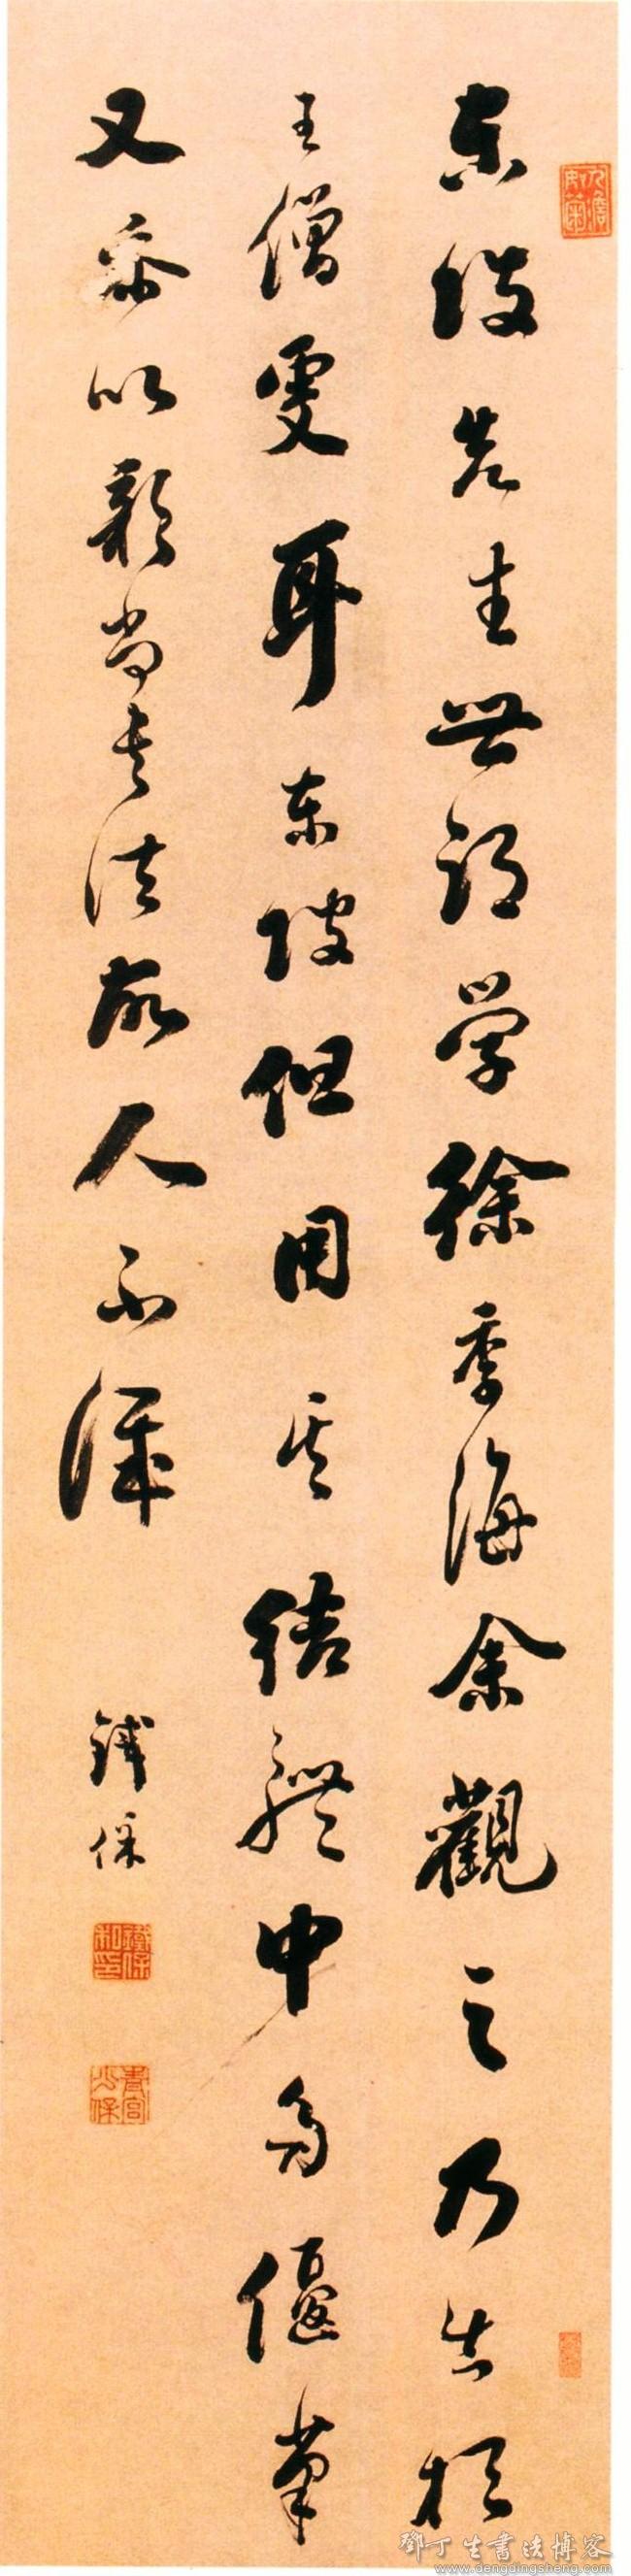 東坡先生世謂學徐季海余觀之乃出於
王僧虔耳東坡但用其結體中多偃筆
又參以顏尚書法故人不識
銕保
鐵保私印
青宮少保
鄧丁生書法博客
www.dengdingsheng.com